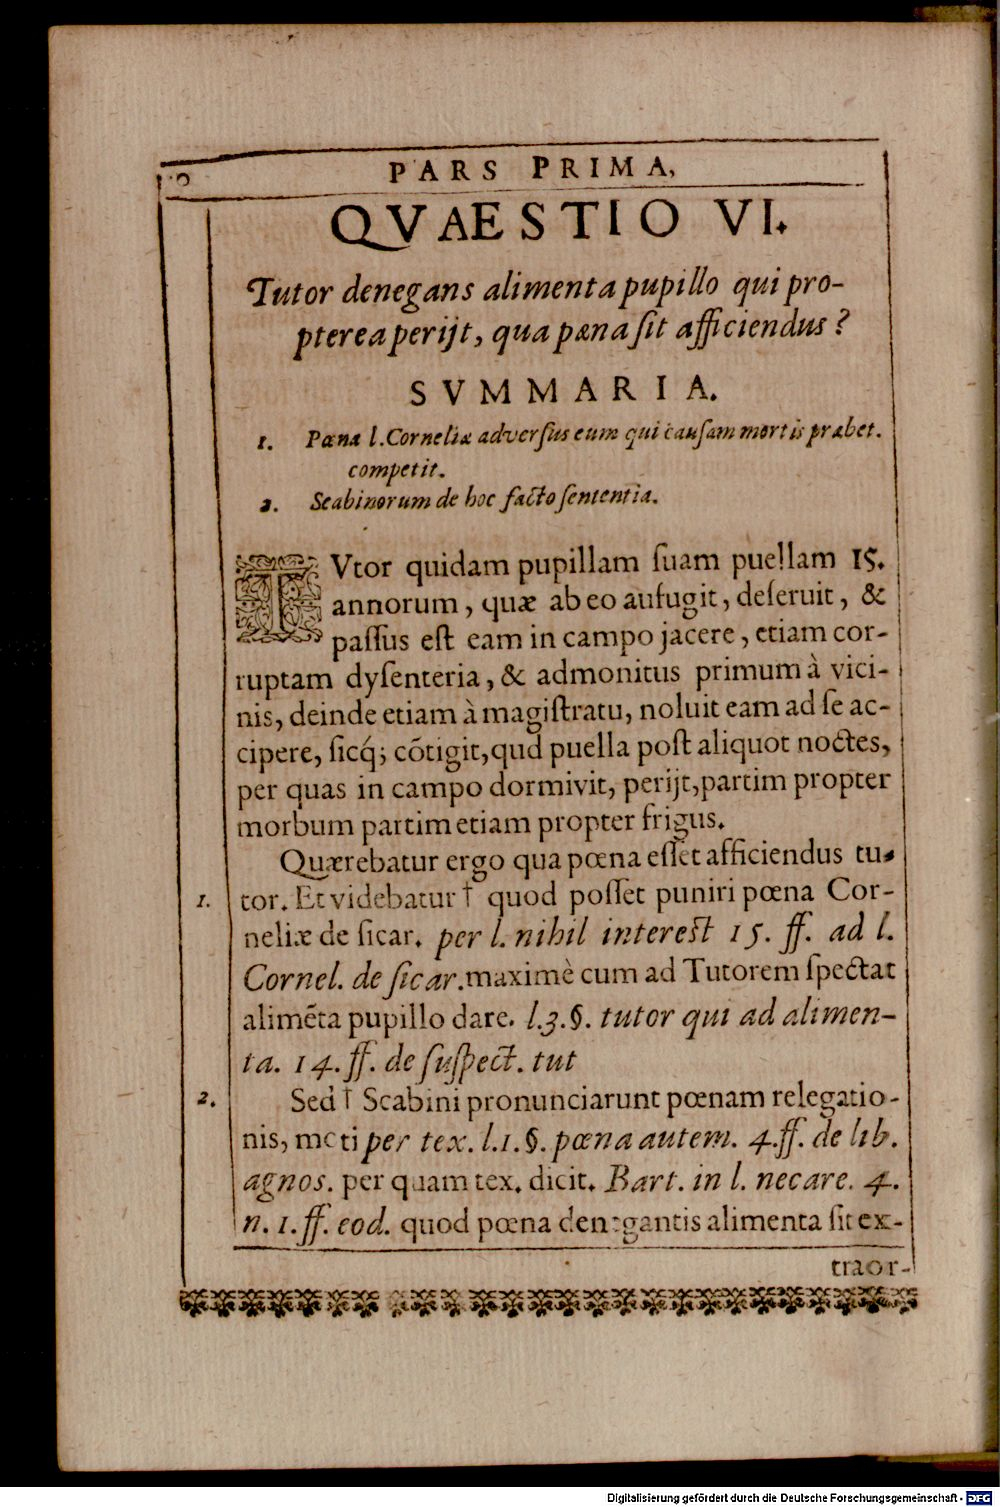 PARS PRIMA,
QVAESTIO VI.
Tutor denegans alimenta pupillo qui pro-
pterea perijt, qua pœna ſit afficiendus?
SVMMARIA.
1. Pœna l. Corneliæ adverſus eum qui cauſam mortis præbet.
competit.
2. Scabinorum de hoc facto ſententia.
TVtor quidam pupillam ſuam puellam 15.
annorum, quæ ab eo aufugit, deſeruit, &
paſſus eſt eam in campo jacere, etiam cor-
ruptam dyſenteria, & admonitus primum à vici-
nis, deinde etiam à magiſtratu, noluit eam ad ſe ac-
cipere, ſicq́; cõtigit, qud puella poſt aliquot noctes,
per quas in campo dormivit, perijt, partim propter
morbum partim etiam propter frigus.
Quærebatur ergo qua pœna eſſet afficiendus tu-
1. tor. Et videbatur † quod poſſet puniri pœna Cor-
neliæ de ſicar. per l. nihil intereſt 15. ff. ad l.
Cornel. de ſicar. maximè cum ad Tutorem ſpectat
alimẽta pupillo dare. l. 3. §. tutor qui ad alimen-
ta. 14. ff. de ſuſpect. tut
2. Sed † Scabini pronunciarunt pœnam relegatio-
nis, moti per tex. l. 1. §. pœna autem. 4. ff. de lib.
agnos. per quam tex. dicit. Bart. in l. necare. 4.
n. 1. ff. eod. quod pœna denegantis alimenta ſit ex-
traor-
Digitalisierung gefördert durch die Deutsche Forschungsgemeinschaft - DFG